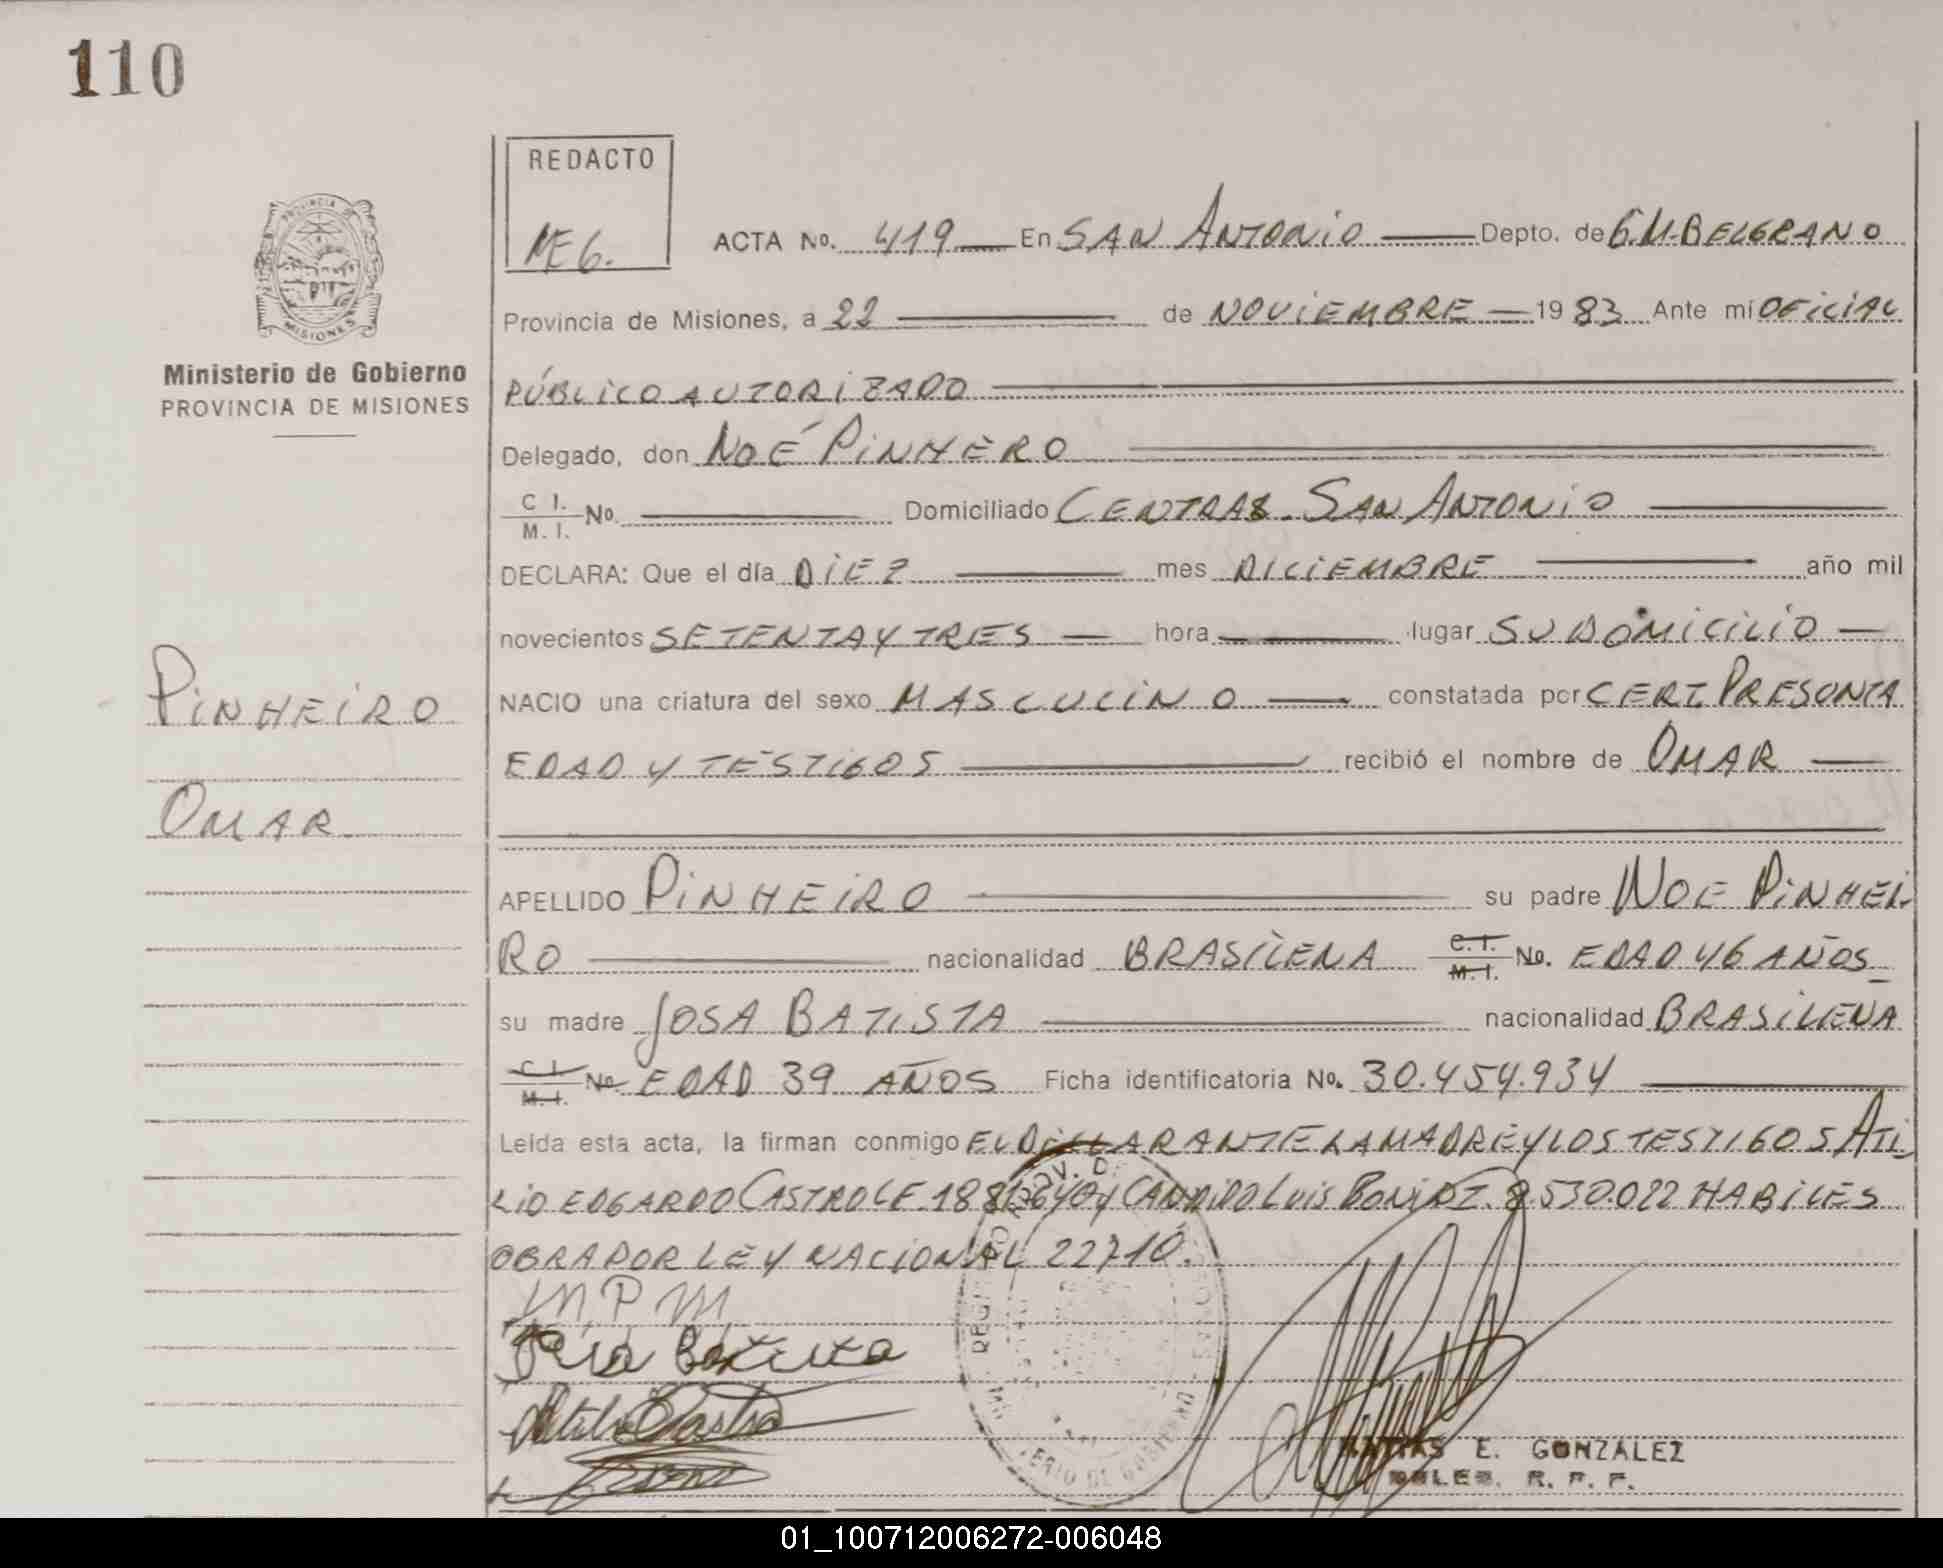 110
REDACTO
MEG.
ACTA No. 419 En SAN ANTONIO Depto. de G.M.BELGRANO
PROVINCIA DE
MISIONES
Ministerio de Gobierno
PROVINCIA DE MISIONES
Provincia de Misiones, a 22 de NOVIEMBRE 1983 Ante mí OFICIAL
PÚBLICO AUTORIZADO
Delegado, don NOÉ PINHERO
C I. No.
M. I.
Domiciliado CENTRAL. SAN ANTONIO
DECLARA: Que el día DIEZ mes DICIEMBRE año mil
novecientos SETENTA Y TRES hora lugar SU DOMICILIO
PINHEIRO
NACIO una criatura del sexo MASCULINO constatada por CERT. PRESONTA
EDAD Y TESTIGOS recibió el nombre de OMAR
OMAR
APELLIDO PINHEIRO su padre NOE PINHEI-
RO nacionalidad BRASILENA C.I. No. EDAD 46 AÑOS
M.I.
su madre JOSA BATISTA nacionalidad BRASILENA
C.I. No. EDAD 39 AÑOS Ficha identificatoria No. 30.454.934
M.I.
Leída esta acta, la firman conmigo EL DECLARANTE LA MADRE Y LOS TESTIGOS ATI-
LIO EDGARDO CASTRO LE. Y CANDIDO LUIS 8.530.022 HABILES
OBRADOR LEY NACIONAL 22710.
M P M
Batista
Castro
MATIAS E. GONZALEZ
R. P. P.
01_100712006272-006048